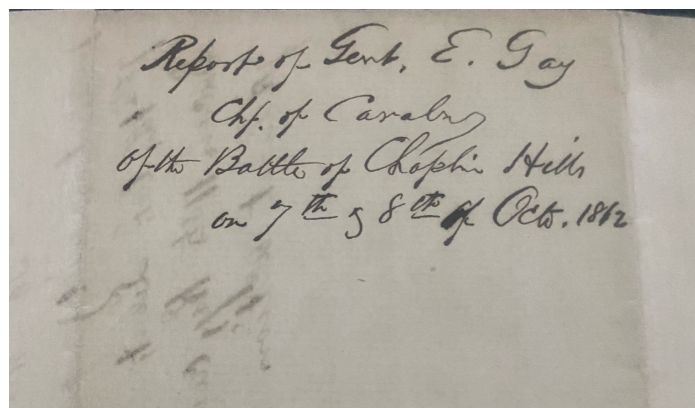 Report of Genl, E. Gay
Chf. of Cavalry
of the Battle of Chaplin Hills
on 7th & 8th of Octo. 1862